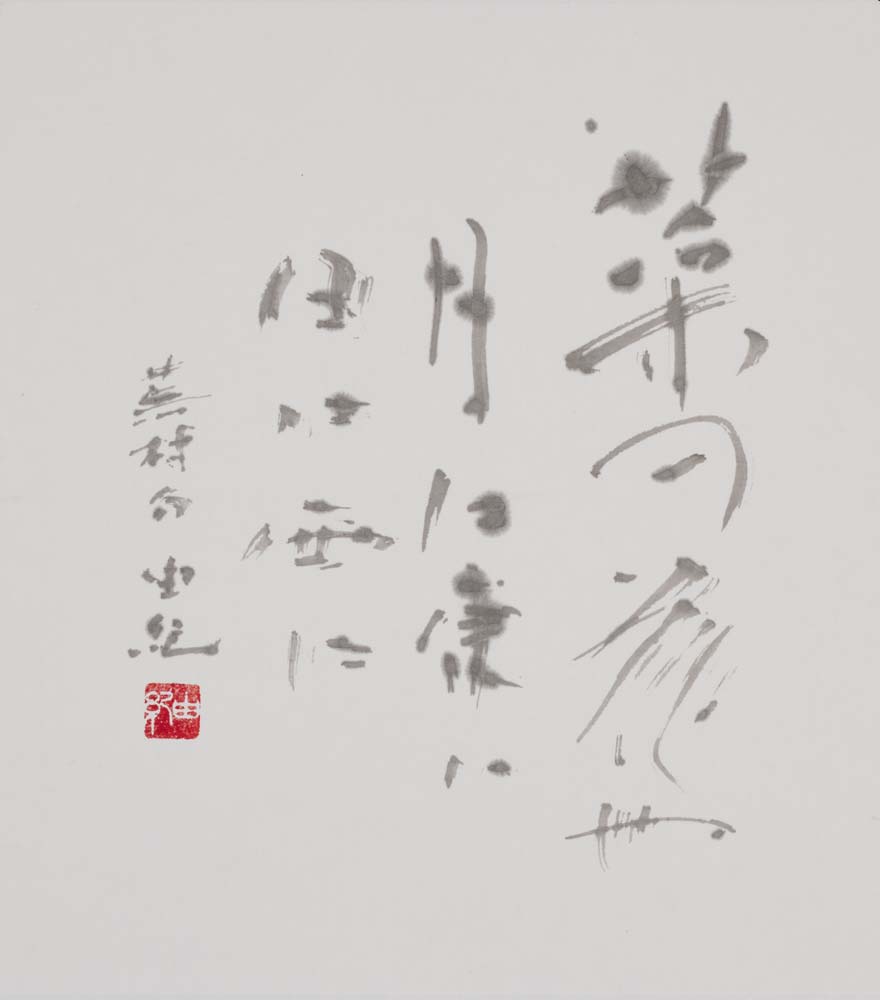 菜の花や
月は東に
日は西に
蕪村句 由紀
由紀